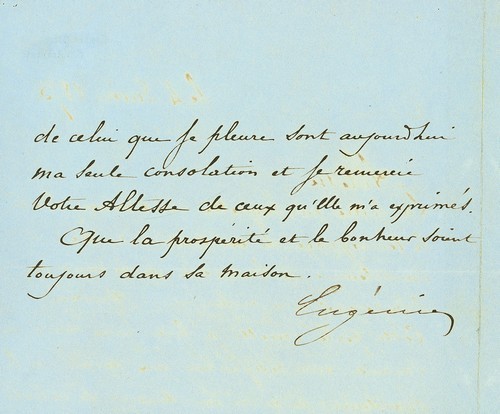 de celui que je pleure sont aujourd'hui
ma seule consolation et je remercie
Votre Altesse de ceux qu'Elle m'a exprimés.
Que la prospérité et le bonheur soient
toujours dans sa maison.
Eugénie